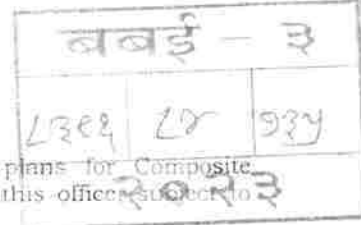 बबई - ३
८४ १३५
plans for Composite
this office subject to
२०२३